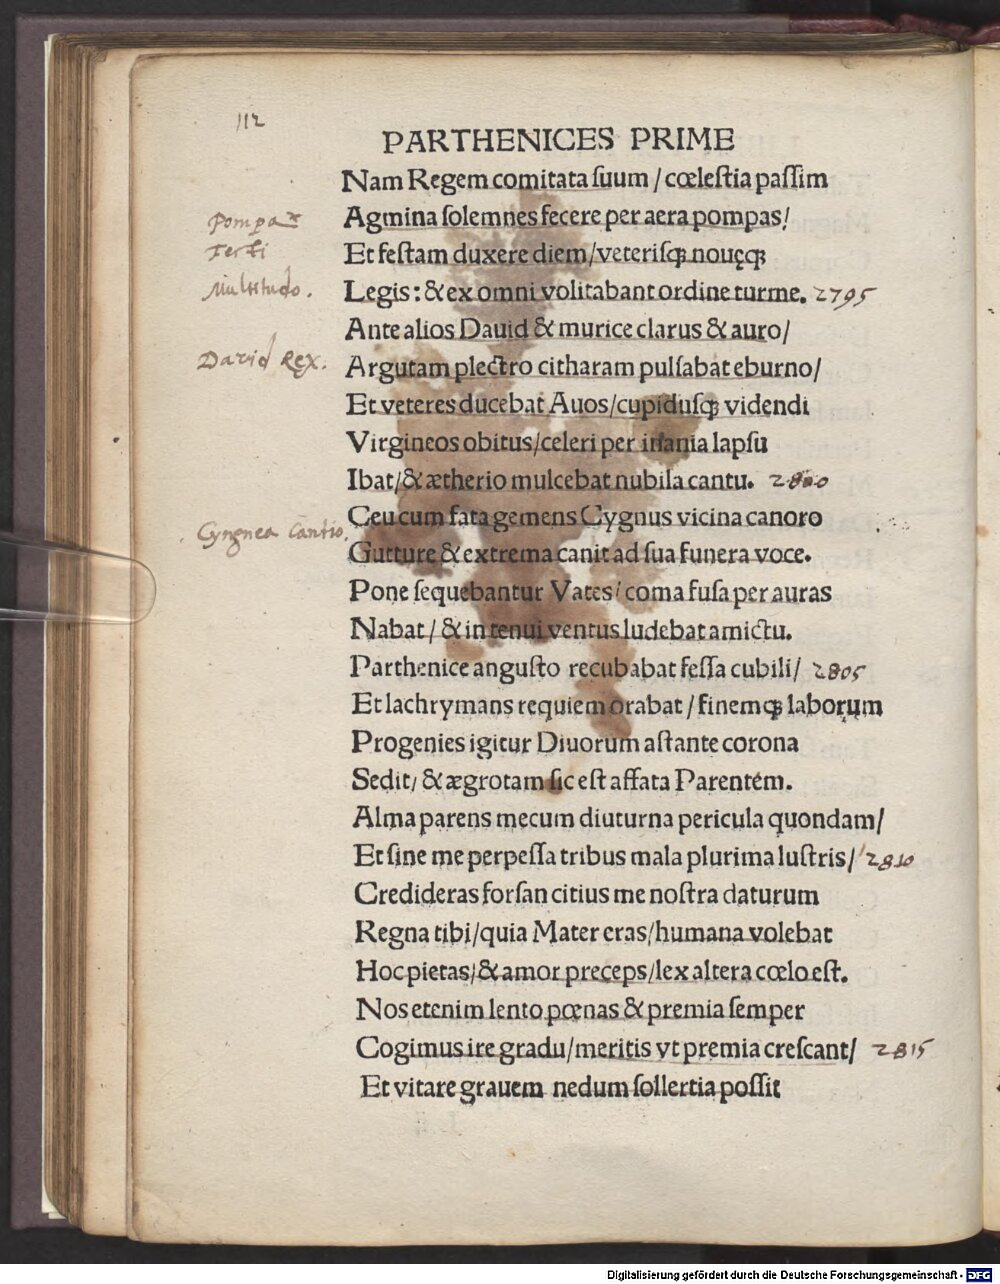 112
PARTHENICES PRIME
Nam Regem comitata ſuum / cœleſtia paſſim
Pompa
Agmina ſolemnes fecere per aera pompas/
Feſti
Et feſtam duxere diem/veteriſqꝫ nouęqꝫ
Multitudo.
Legis: & ex omni volitabant ordine turme. 2795
Ante alios Dauid & murice clarus & auro/
David Rex.
Argutam plectro citharam pulſabat eburno/
Et veteres ducebat Auos/cupiduſqꝫ videndi
Virgineos obitus/celeri per inania lapſu
Ibat/& ætherio mulcebat nubila cantu. 2800
Ceu cum fata gemens Cygnus vicina canoro
Cyngnea Cantio.
Gutture & extrema canit ad ſua funera voce.
Pone ſequebantur Vates/ coma fuſa per auras
Nabat / & in tenui ventus ludebat amictu.
Parthenice anguſto recubabat feſſa cubili/ 2805
Et lachrymans requiem orabat / finemqꝫ laborum
Progenies igitur Diuorum aſtante corona
Sedit/ & ægrotam ſic eſt affata Parentem.
Alma parens mecum diuturna pericula quondam/
Et ſine me perpeſſa tribus mala plurima luſtris/ 2810
Credideras forſan citius me noſtra daturum
Regna tibi/quia Mater eras/humana volebat
Hoc pietas/& amor preceps/lex altera cœlo eſt.
Nos etenim lento pœnas & premia ſemper
Cogimus ire gradu/meritis vt premia creſcant/ 2815
Et vitare grauem nedum ſollertia poſſit
Digitalisierung gefördert durch die Deutsche Forschungsgemeinschaft - DFG